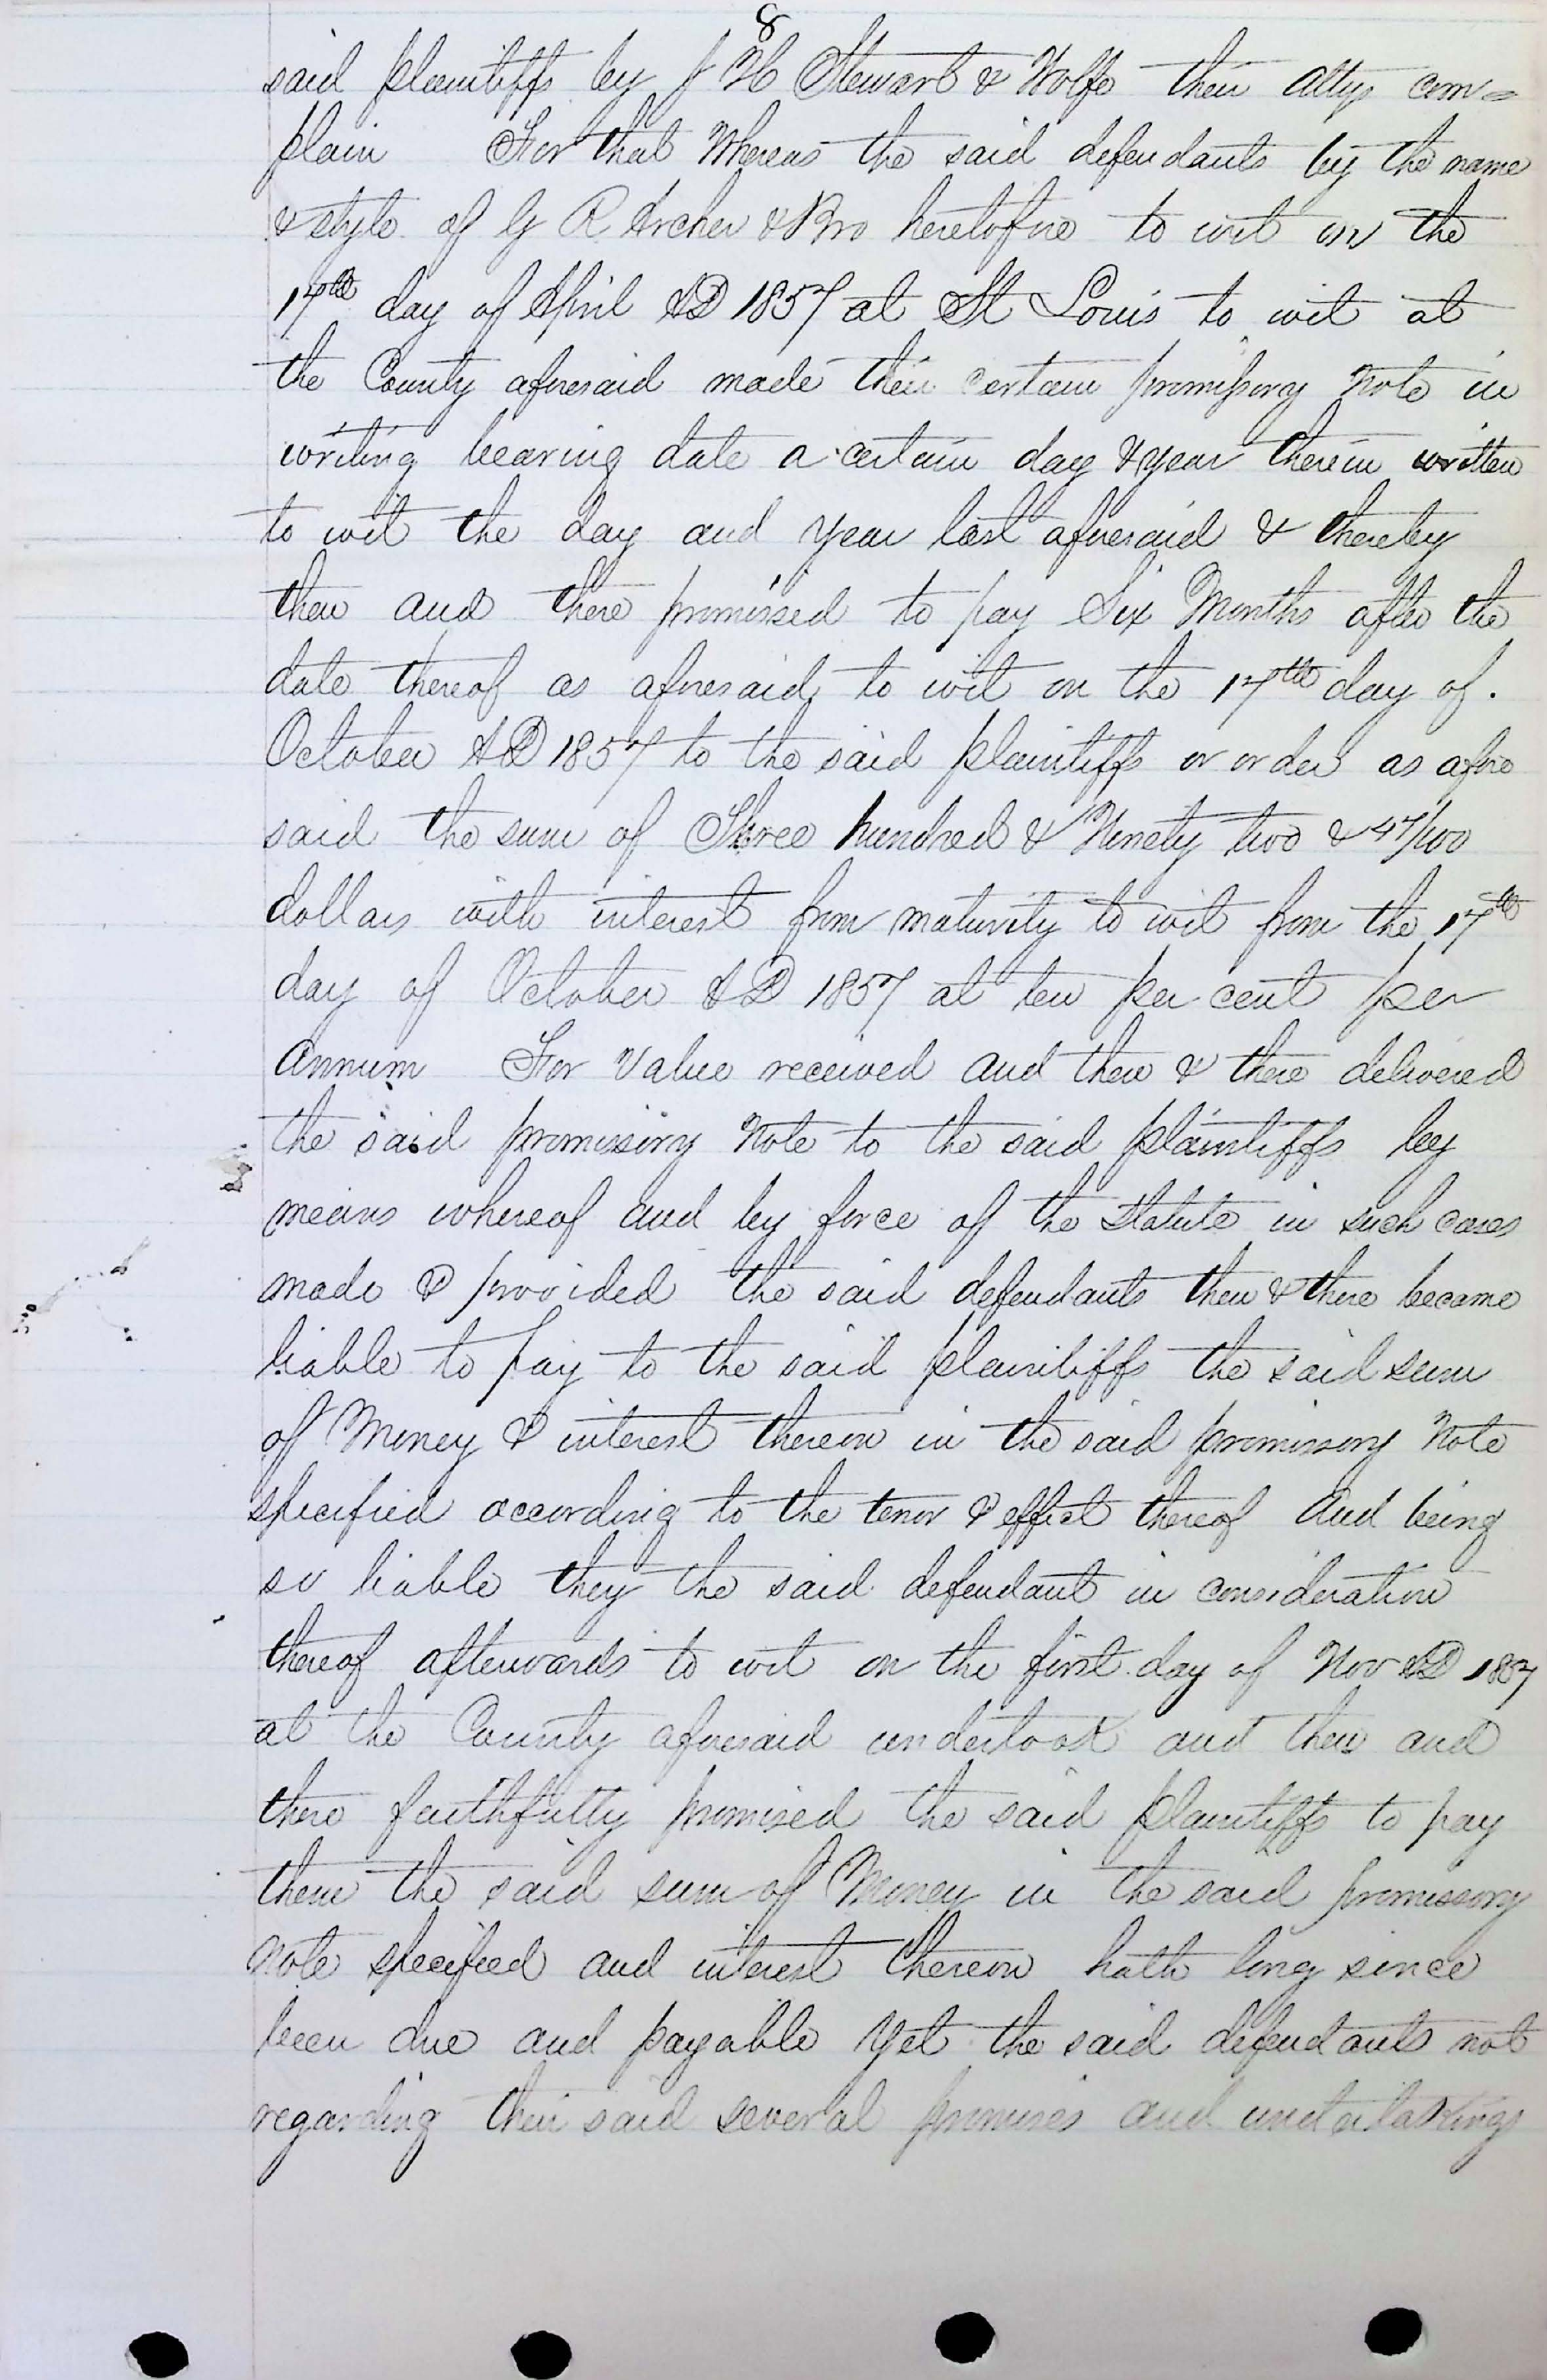 8
said plaintiffs by J H Stewart & Wolfe their attys com=
plain For that Whereas the said defendants by the name
& style of G R Archer & Bro heretofore to wit on the
17th day of April AD 1857 at St Louis to wit at
the County aforesaid made their certain promissory Note in
writing bearing date a certain day & year therein written
to wit the day and year last aforesaid & thereby
then and there promised to pay Six Months after the
date thereof as aforesaid, to wit on the 17th day of.
October AD 1857 to the said plaintiffs or order as afore
said the sum of Three hundred & Ninety two & 47/100
dollars with interest from maturity to wit from the 17th
day of October AD 1857 at ten per cent per
annum For Value received and then & there delivered
the said promissory Note to the said plaintiffs by
means whereof and by force of the Statute in such cases
made & provided the said defendants then & there became
liable to pay to the said plaintiffs the said sum
of Money & interest thereon in the said promissory Note
specified according to the tenor & effect thereof And being
so liable they the said defendant in consideration
thereof afterwards to wit on the first day of Nov AD 1857
at the County aforesaid undertook and then and
there faithfully promised the said plaintiffs to pay
them the said sum of Money in the said promissory
note specified and interest thereon hath long since
been due and payable Yet the said defendants not
regarding their said several promises and undertakings